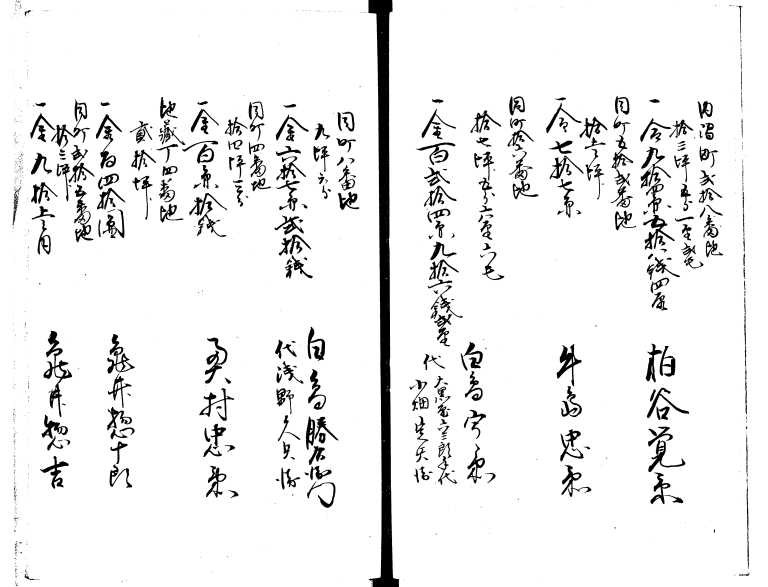 内沼町弐拾八番地
拾三坪五分一重弐毛
一金九拾四円五拾八銭四厘
柏谷覚円
同町五拾弐番地
拾七坪
一金七拾七円
牛島忠
同町拾六番地
拾七坪五分六重六毛
一金百弐拾四円九拾六銭弐厘
白鳥
代 大黒屋六三郎手代
小畑
同町八番地
九坪六分
一金六拾七円弐拾銭
白鳥勝右衛門
代浅野久兵衛
同町四番地
拾四坪三分
一金百円拾銭
村忠
地蔵丁四番地
弐拾坪
一金百四拾円
亀井惣十郎
同町弐拾五番地
拾三坪
一金九拾七円
亀井惣吉